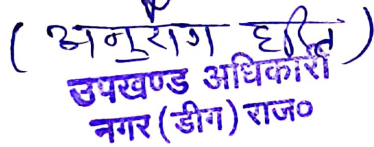 ( अनुराग हरित )
उपखण्ड अधिकारी
नगर (डीग) राज०